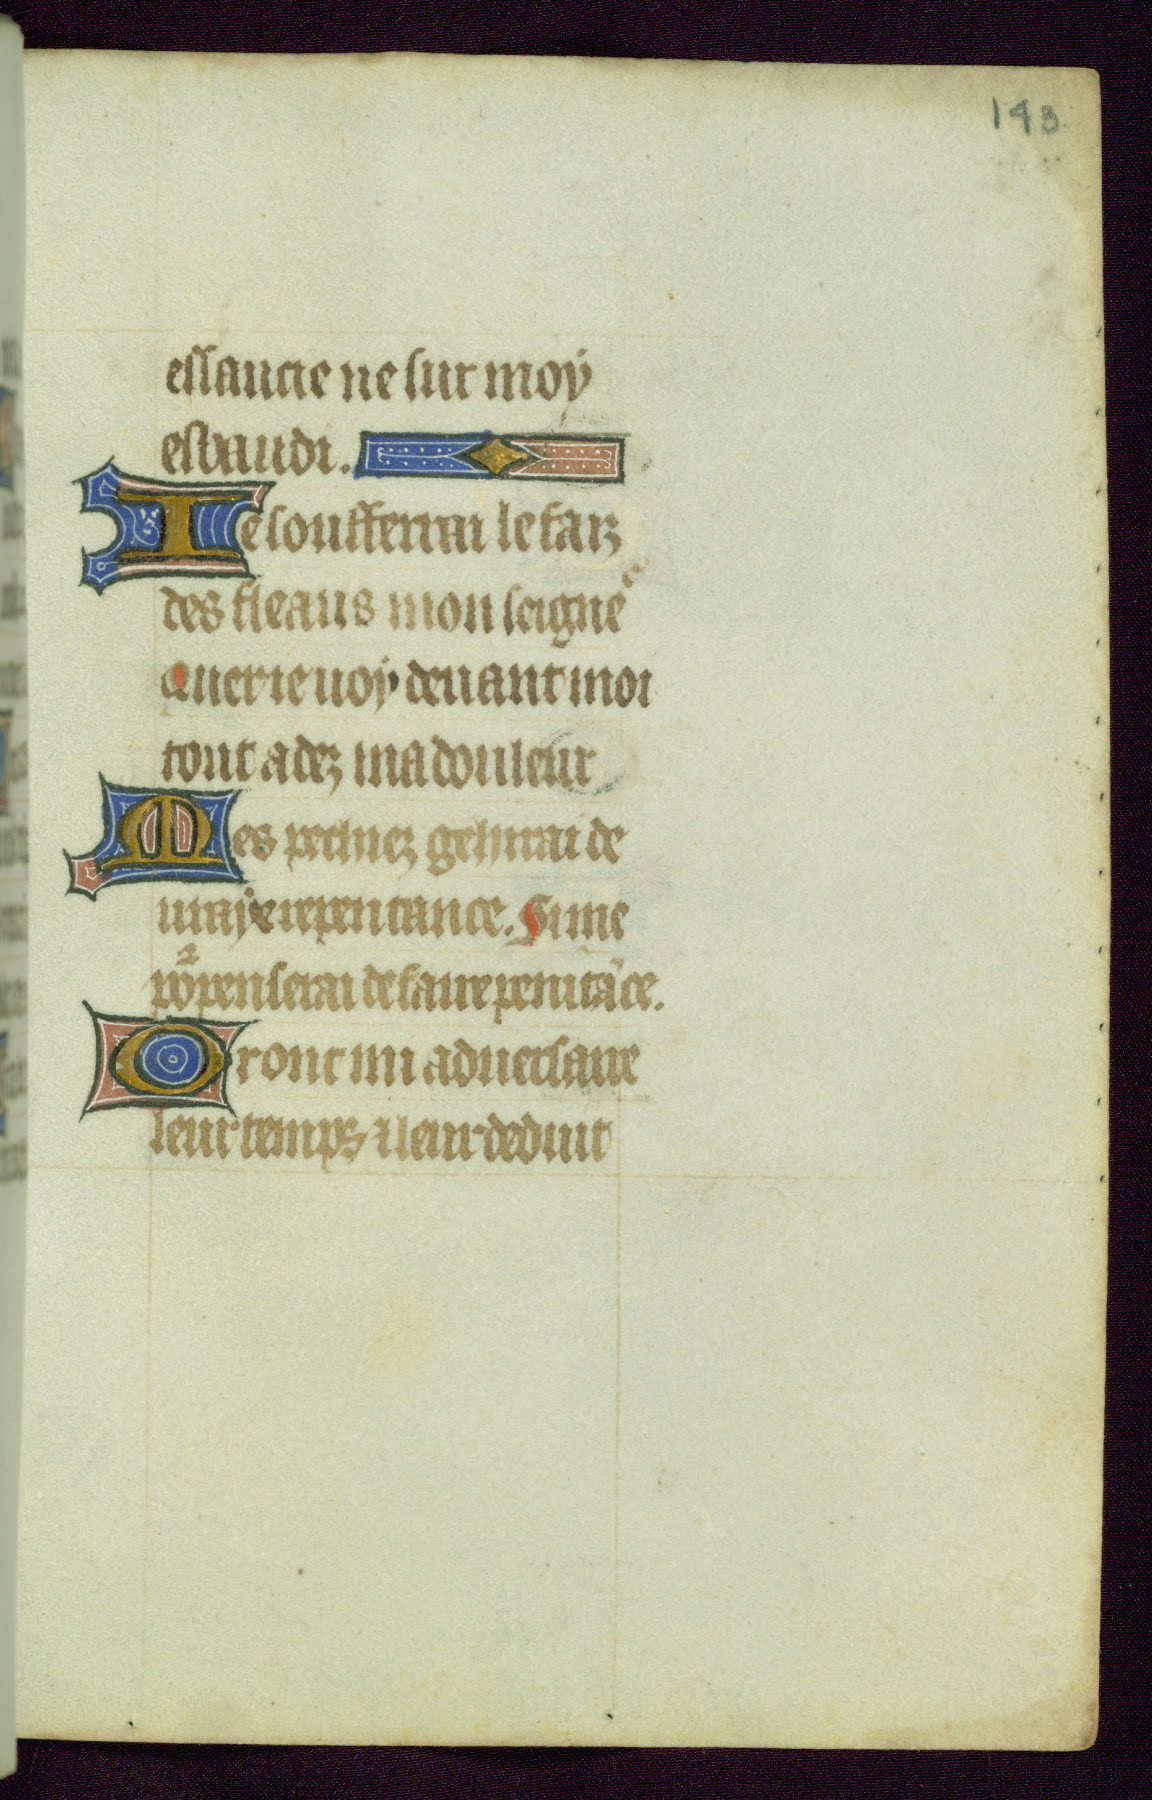 143
essaucie ne sur moy
esbaudi.
Ie soufferrai le fais
des fleaus mon seigne᷑
Quer ie uoy deuant moi
tout adez ma douleur
Mes pechiez gehirai de
uraye repentance. Si me
po᷑penserai de faire penitāce.
Oront mi aduersaire
leur temps ⁊ leur deduit